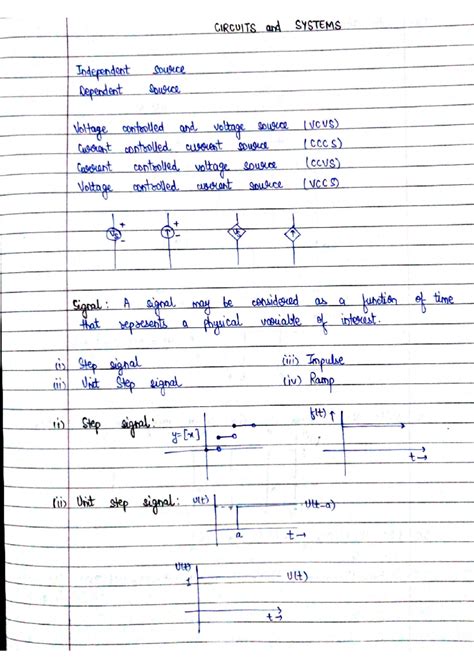 CIRCUITS and SYSTEMS
Independent source
Dependent source
Voltage controlled and voltage source (VCVS)
Current controlled current source (CCCS)
Current controlled voltage source (CCVS)
Voltage controlled current source (VCCS)
+ + 
- -
Signal: A signal may be considered as a function of time
that represents a physical variable of interest.
(i) Step signal (iii) Impulse
(ii) Unit Step signal (iv) Ramp
(i) Step signal: y=[x] f(t) ↑
t→
(ii) Unit step signal: u(t) U(t-a)
a t→
U(t)
1 U(t)
t→